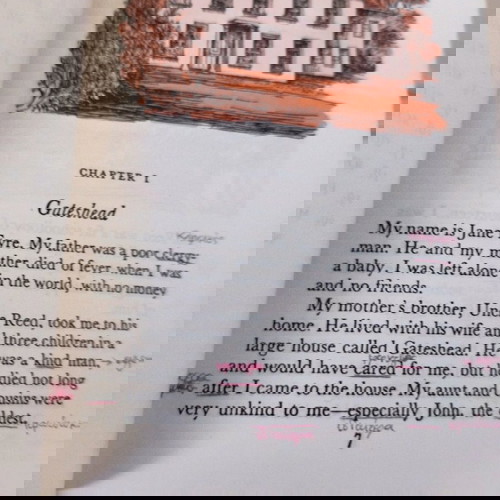 CHAPTER I
Gateshead
My name is Jane
Eyre. My father was a poor clergy-
man. He and my mo-
ther died of fever when I was
a baby. I was left alone
in the world, with no money
and no friends.
My mother's brother, Uncle
Reed, took me to his
home. He lived with his wife and
three children in a
large house called Gateshead. He
was a kind man,
and would have cared for me, but he
died not long
after I came to the house. My aunt and
cousins were
very unkind to me—especially John, the
oldest.
7